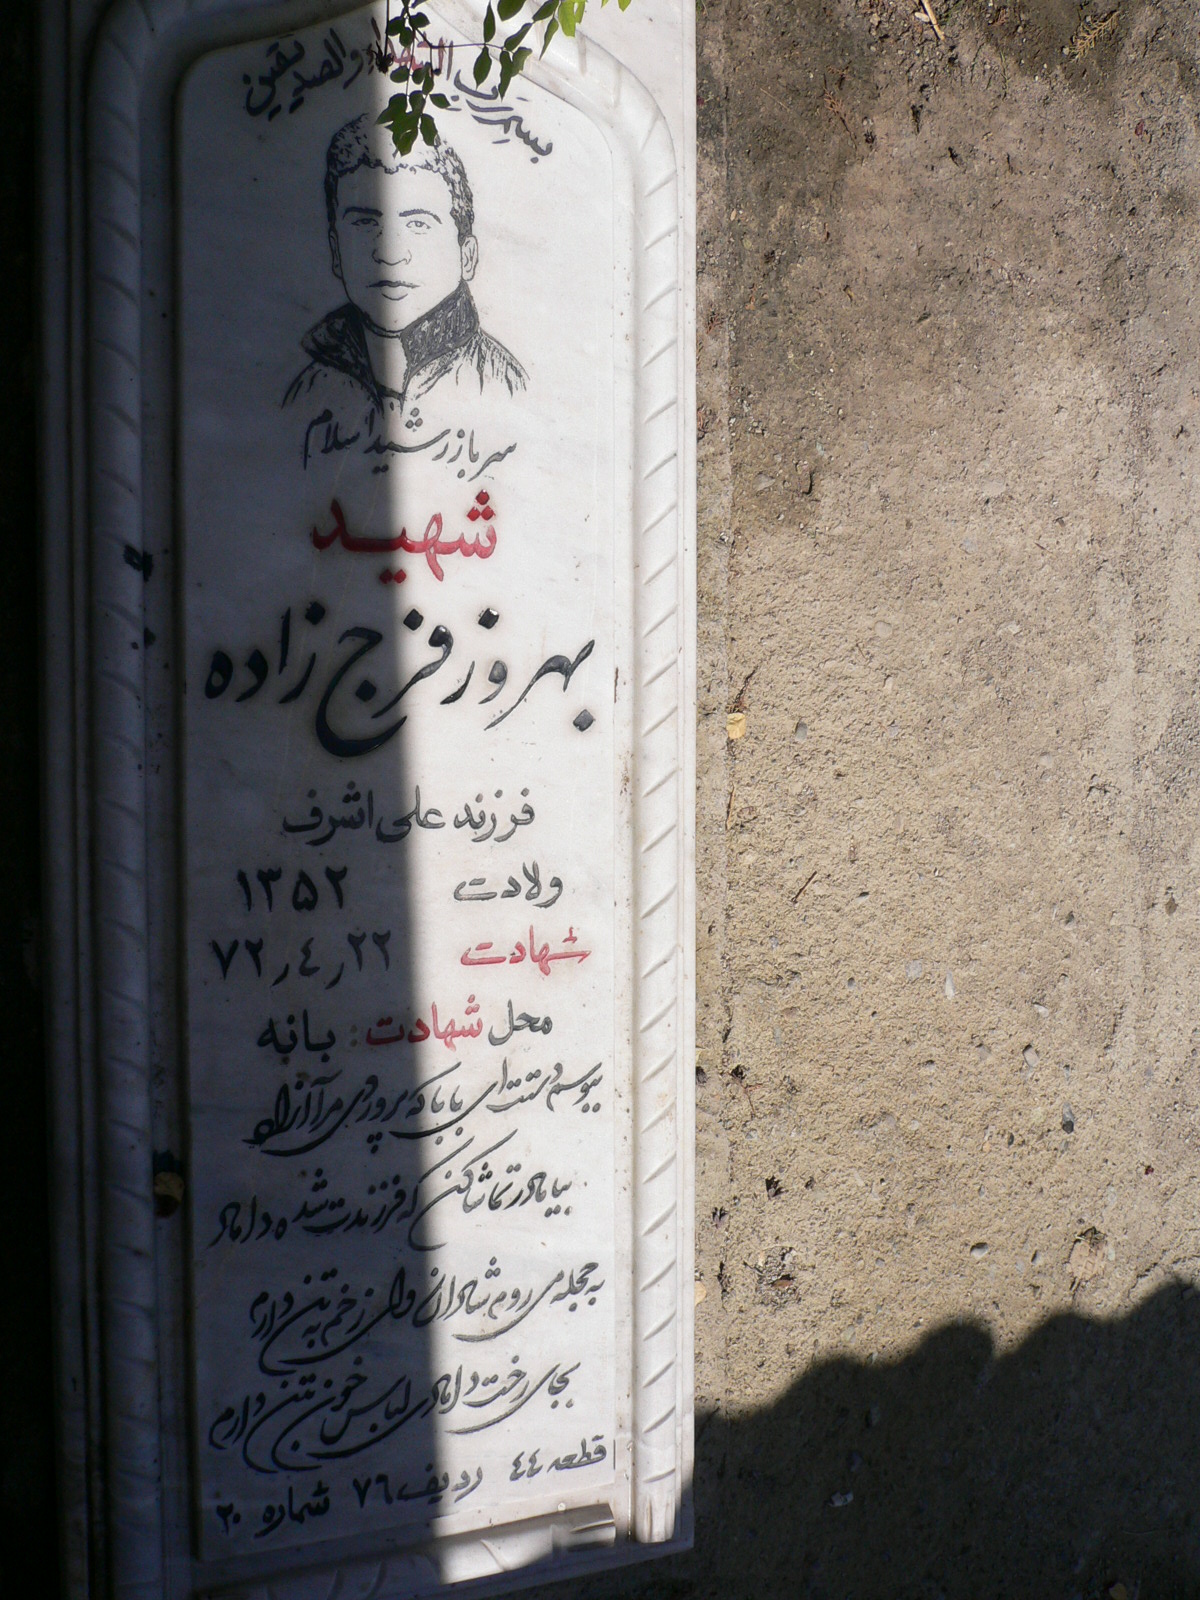 بسم رب الشهداء والصدیقین
سرباز رشید اسلام
شهید
بهروز فرج زاده
فرزند علی اشرف
ولادت ۱۳۵۲
شهادت ۲۲ر۴ر۷۲
محل شهادت: بانه
ببوسم دستت ای بابا که پروردی مرا آزاد
بیا مادر تماشا کن که فرزندت شده داماد
به حجله می روم شادان ولی زخمی به تن دارم
بجای رخت دامادی لباس خون به تن دارم
قطعه ۴۴ ردیف ۷۶ شماره ۲۰